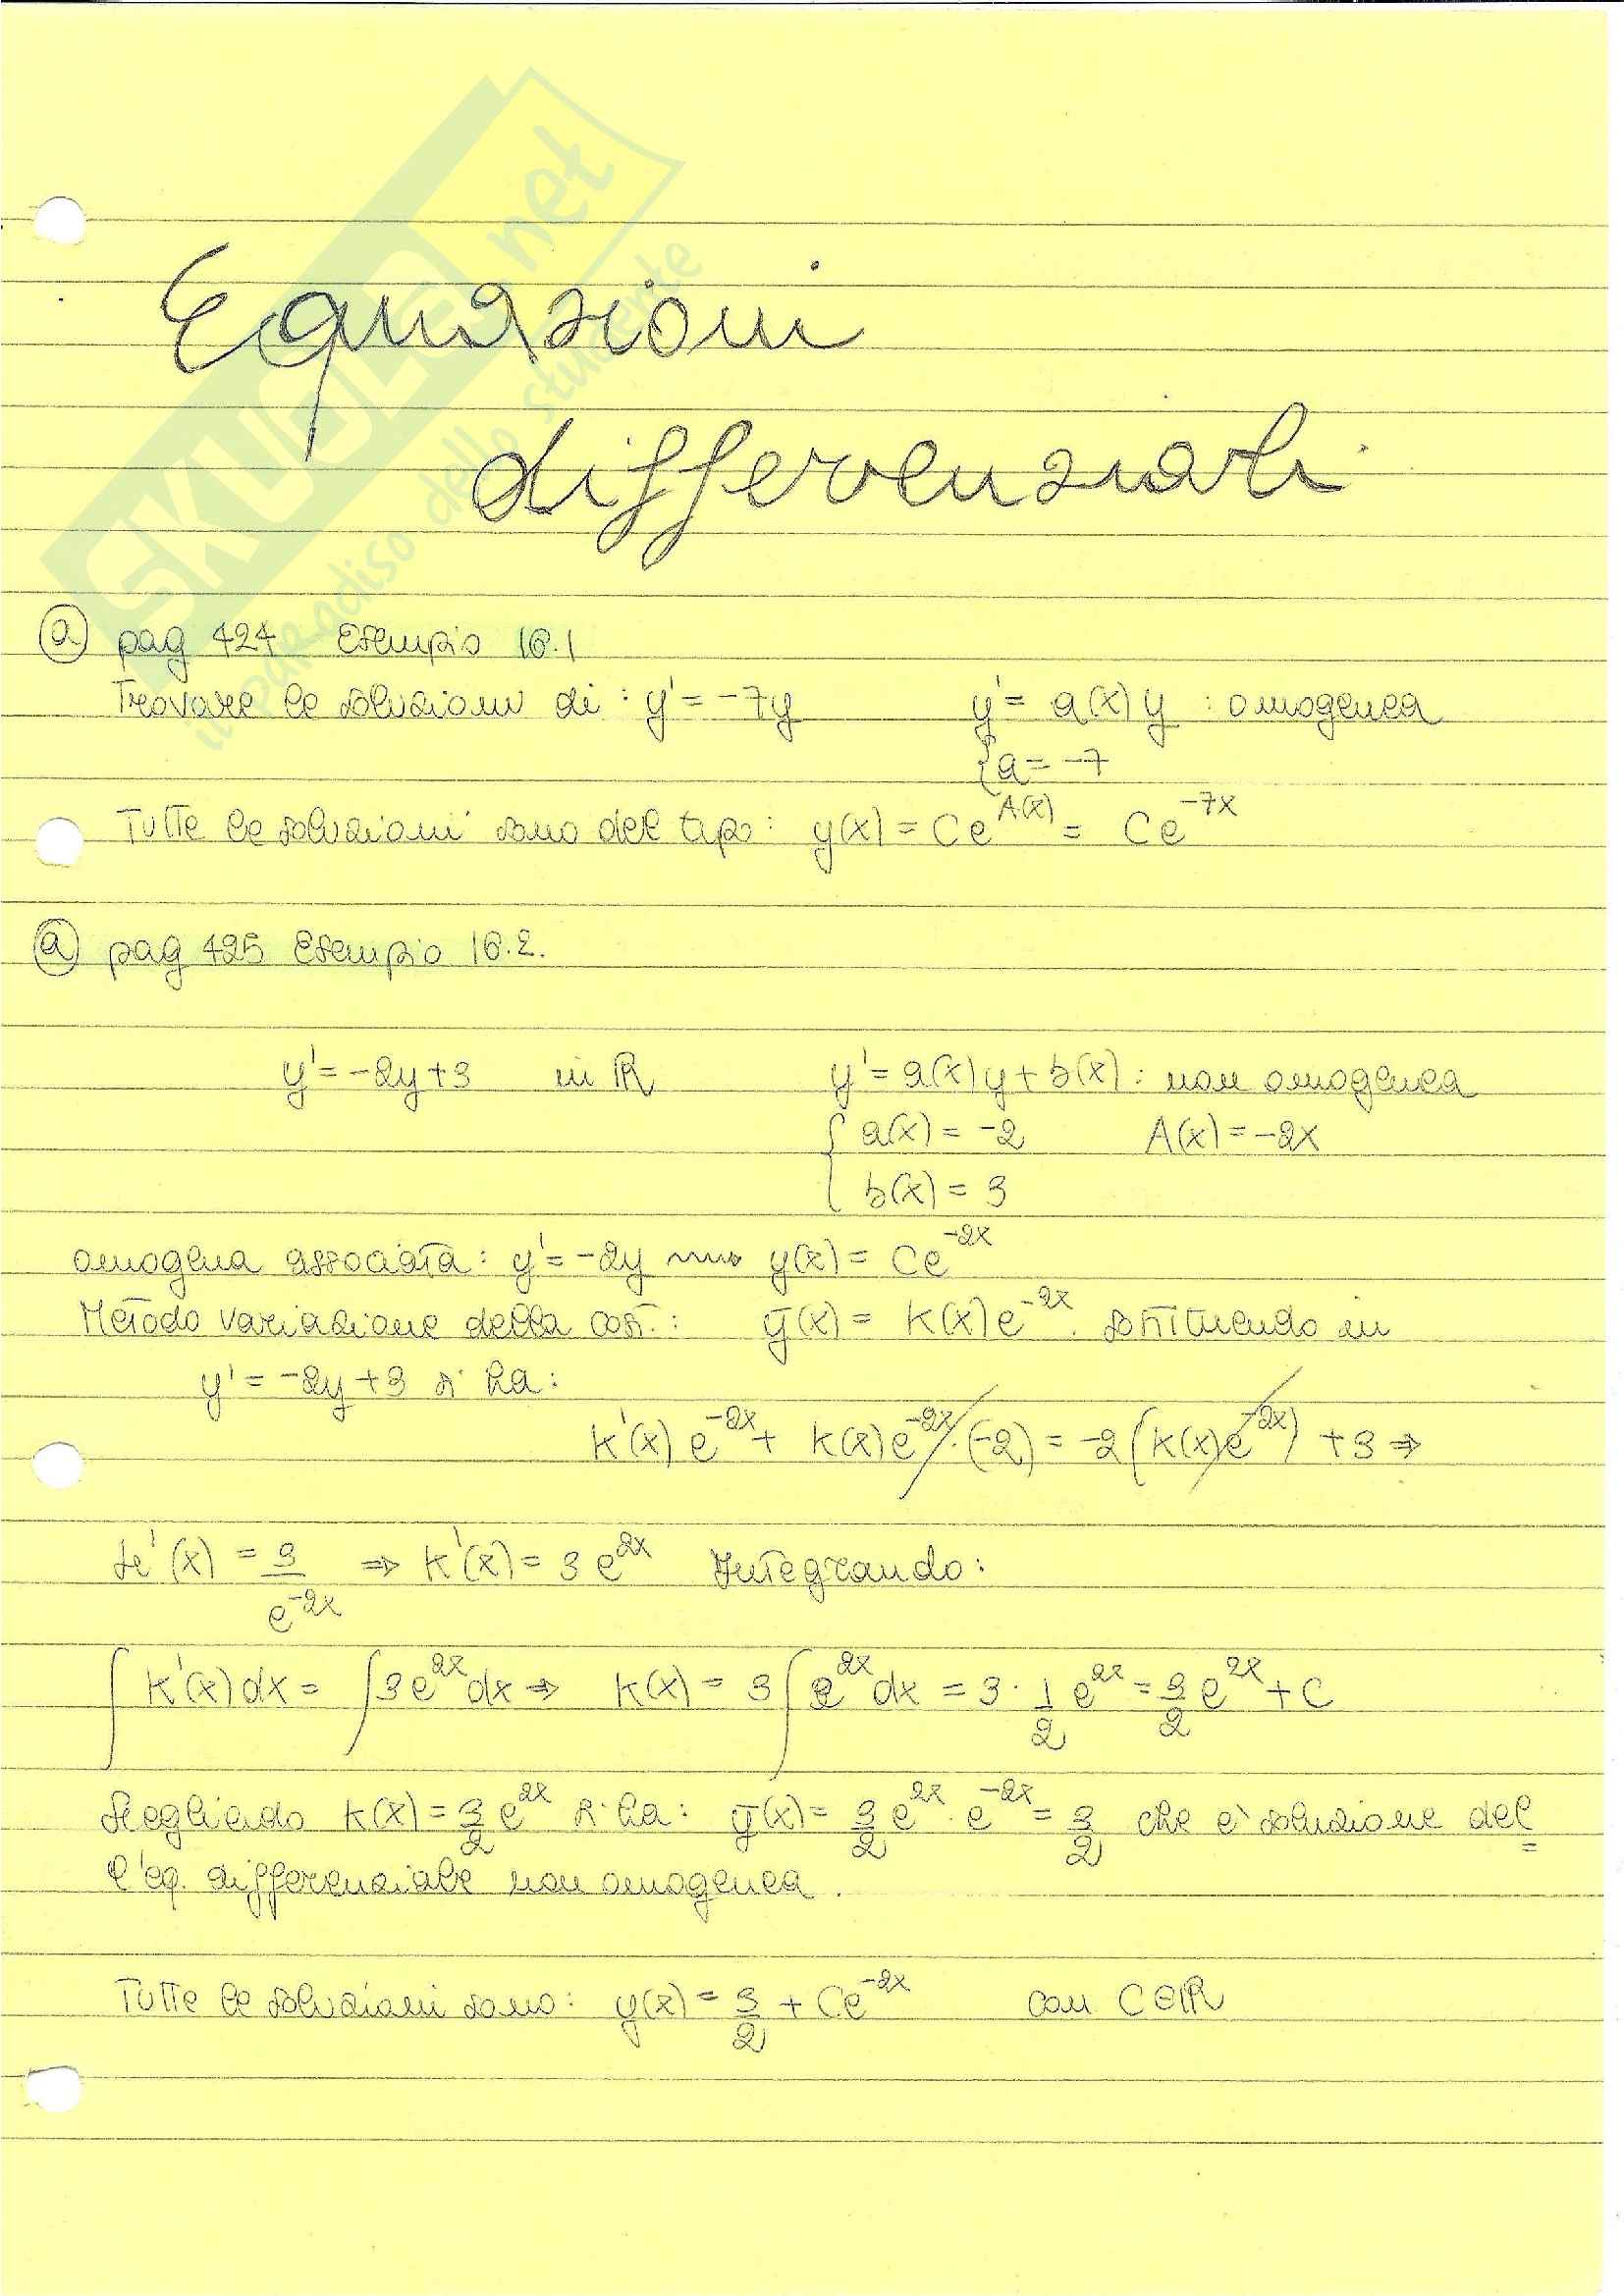 SKUOLA.net
il paradiso dello studente
Equazioni
differenziali
ⓐ pag 424 Esempio 16.1
Trovare le soluzioni di: y' = -7y     y' = a(x)y : omogenea
{ a = -7
Tutte le soluzioni sono del tipo: y(x) = Ce^{A(x)} = Ce^{-7x}
ⓐ pag 425 Esempio 16.2.
y' = -2y+3 in ℝ     y' = a(x)y + b(x): non omogenea
{ a(x) = -2     A(x) = -2x
b(x) = 3
omogena associata: y' = -2y ⇝ y(x) = Ce^{-2x}
Metodo variazione della cost.: ȳ(x) = k(x)e^{-2x}. sostituendo in
y' = -2y+3 si ha:
k'(x)e^{-2x} + k(x)e^{-2x}·(-2) = -2(k(x)e^{-2x}) + 3 ⇒
k'(x) = 3/e^{-2x} ⇒ k'(x) = 3e^{2x} Integrando:
∫k'(x)dx = ∫3e^{2x}dx ⇒ k(x) = 3∫e^{2x}dx = 3·1/2 e^{2x} = 3/2 e^{2x} + C
Scegliendo k(x) = 3/2 e^{2x} si ha: ȳ(x) = 3/2 e^{2x}·e^{-2x} = 3/2 che è soluzione del
l'eq. differenziale non omogenea.
Tutte le soluzioni sono: y(x) = 3/2 + Ce^{-2x}     con C∈ℝ